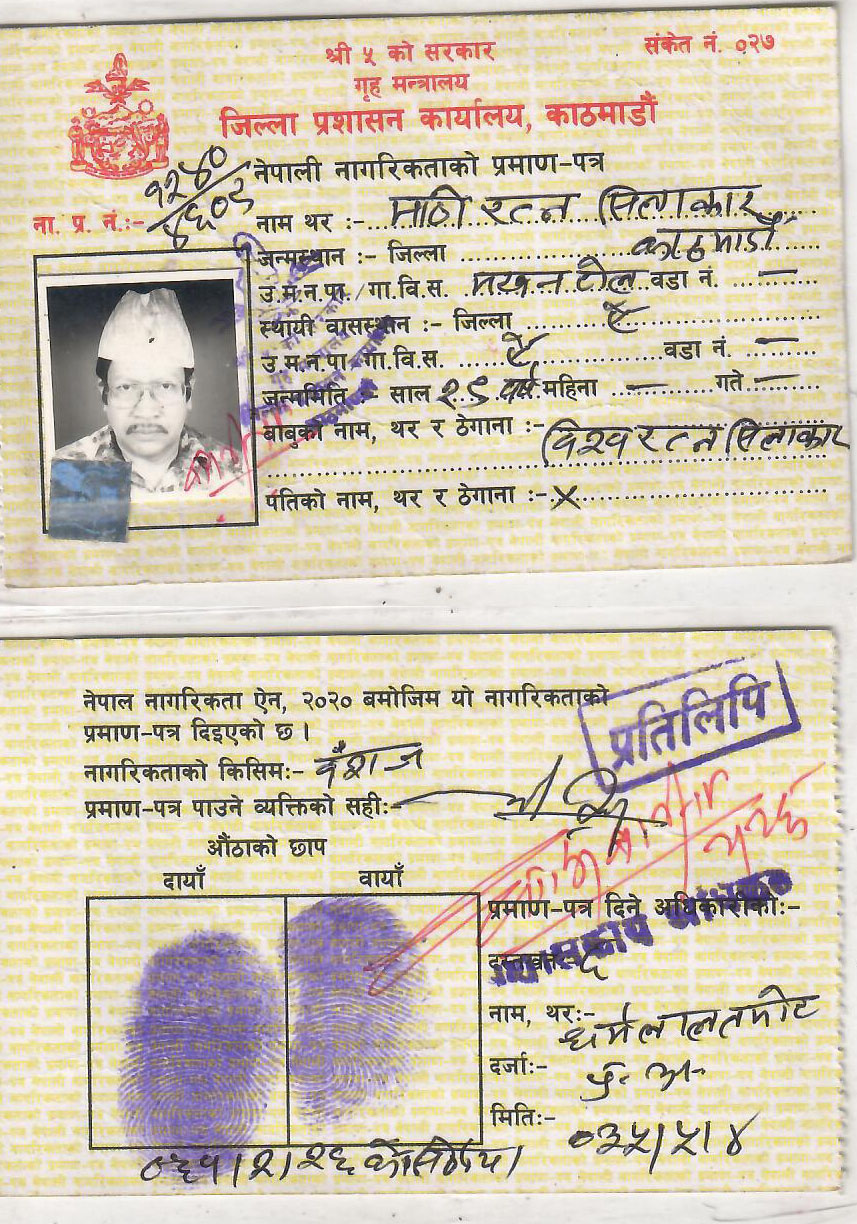 श्री ५ को सरकार
संकेत नं. ०२७
गृह मन्त्रालय
जिल्ला प्रशासन कार्यालय, काठमाडौं
नेपाली नागरिकताको प्रमाण-पत्र
ना. प्र. नं.:-
नाम थर :- रत्न सिलाकार
जन्मस्थान :- जिल्ला काठमाडौं
उ.म.न.पा./गा.वि.स. मखन टोल वडा नं. —
स्थायी वासस्थान :- जिल्ला ऐ
उ.म.न.पा. गा.वि.स. ऐ वडा नं. —
जन्ममिति :- साल २९ वर्ष महिना — गते —
बाबुको नाम, थर र ठेगाना :- विश्व रत्न सिलाकार
पतिको नाम, थर र ठेगाना :- x
नेपाल नागरिकता ऐन, २०२० बमोजिम यो नागरिकताको
प्रमाण-पत्र दिइएको छ ।
प्रतिलिपि
नागरिकताको किसिम:- वंशज
प्रमाण-पत्र पाउने व्यक्तिको सही:-
औंठाको छाप
दायाँ वायाँ
प्रमाण-पत्र दिने अधिकारीको:-
दस्तखत
नाम, थर:-
दर्जा:- प्र. अ.
मिति:- ०३५।५।४